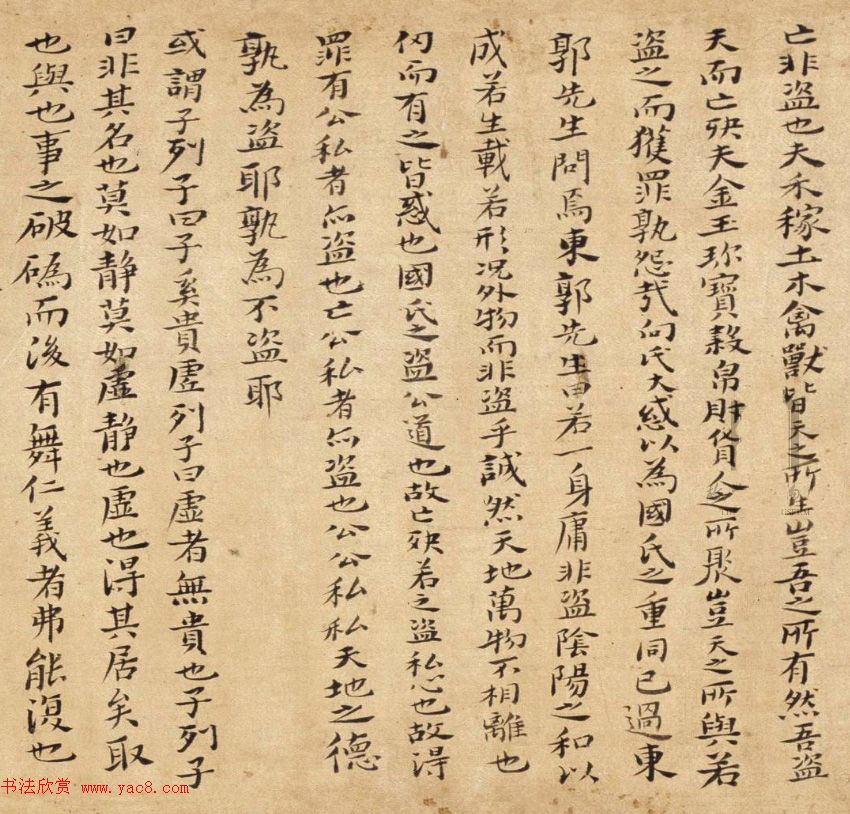 亡非盗也夫禾稼土木禽獸皆天之所生豈吾之所有然吾盗
天而亡殃夫金玉珎寶穀帛財貨人之所聚豈天之所與若
盗之而獲罪孰怨㢤向氏大惑以為國氏之重罔己過東
郭先生問焉東郭先生曰若一身庸非盗陰陽之和以
成若生載若形况外物而非盗乎誠然天地萬物不相離也
仞而有之皆惑也國氏之盗公道也故亡殃若之盗私心也故得
罪有公私者亦盗也亡公私者亦盗也公公私私天地之德
孰為盗耶孰為不盗耶
或謂子列子曰子奚貴虚列子曰虚者無貴也子列子
曰非其名也莫如静莫如虚静也虚也得其居矣取
也與也事之破碼而後有舞仁義者弗能復也
书法欣赏 www.yac8.com